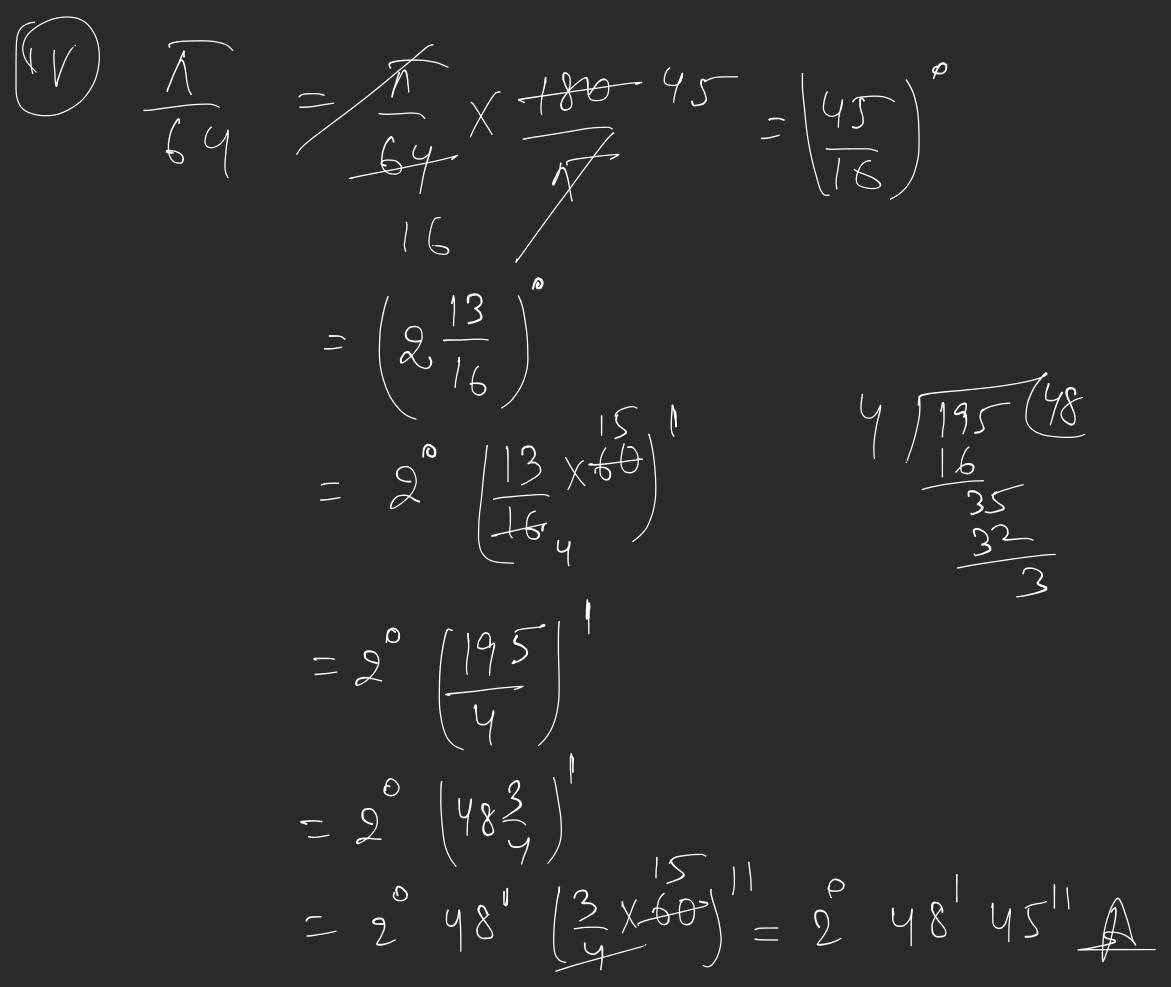 (iv) π/64 = π/64 × 180/π 45 = (45/16)°
16
= (2 13/16)°
= 2° (13/16 × 60)' 15 4
4 ) 195 ( 48
16
35
32
3
= 2° (195/4)'
= 2° (48 3/4)'
= 2° 48' (3/4 × 60)'' 15 = 2° 48' 45'' A